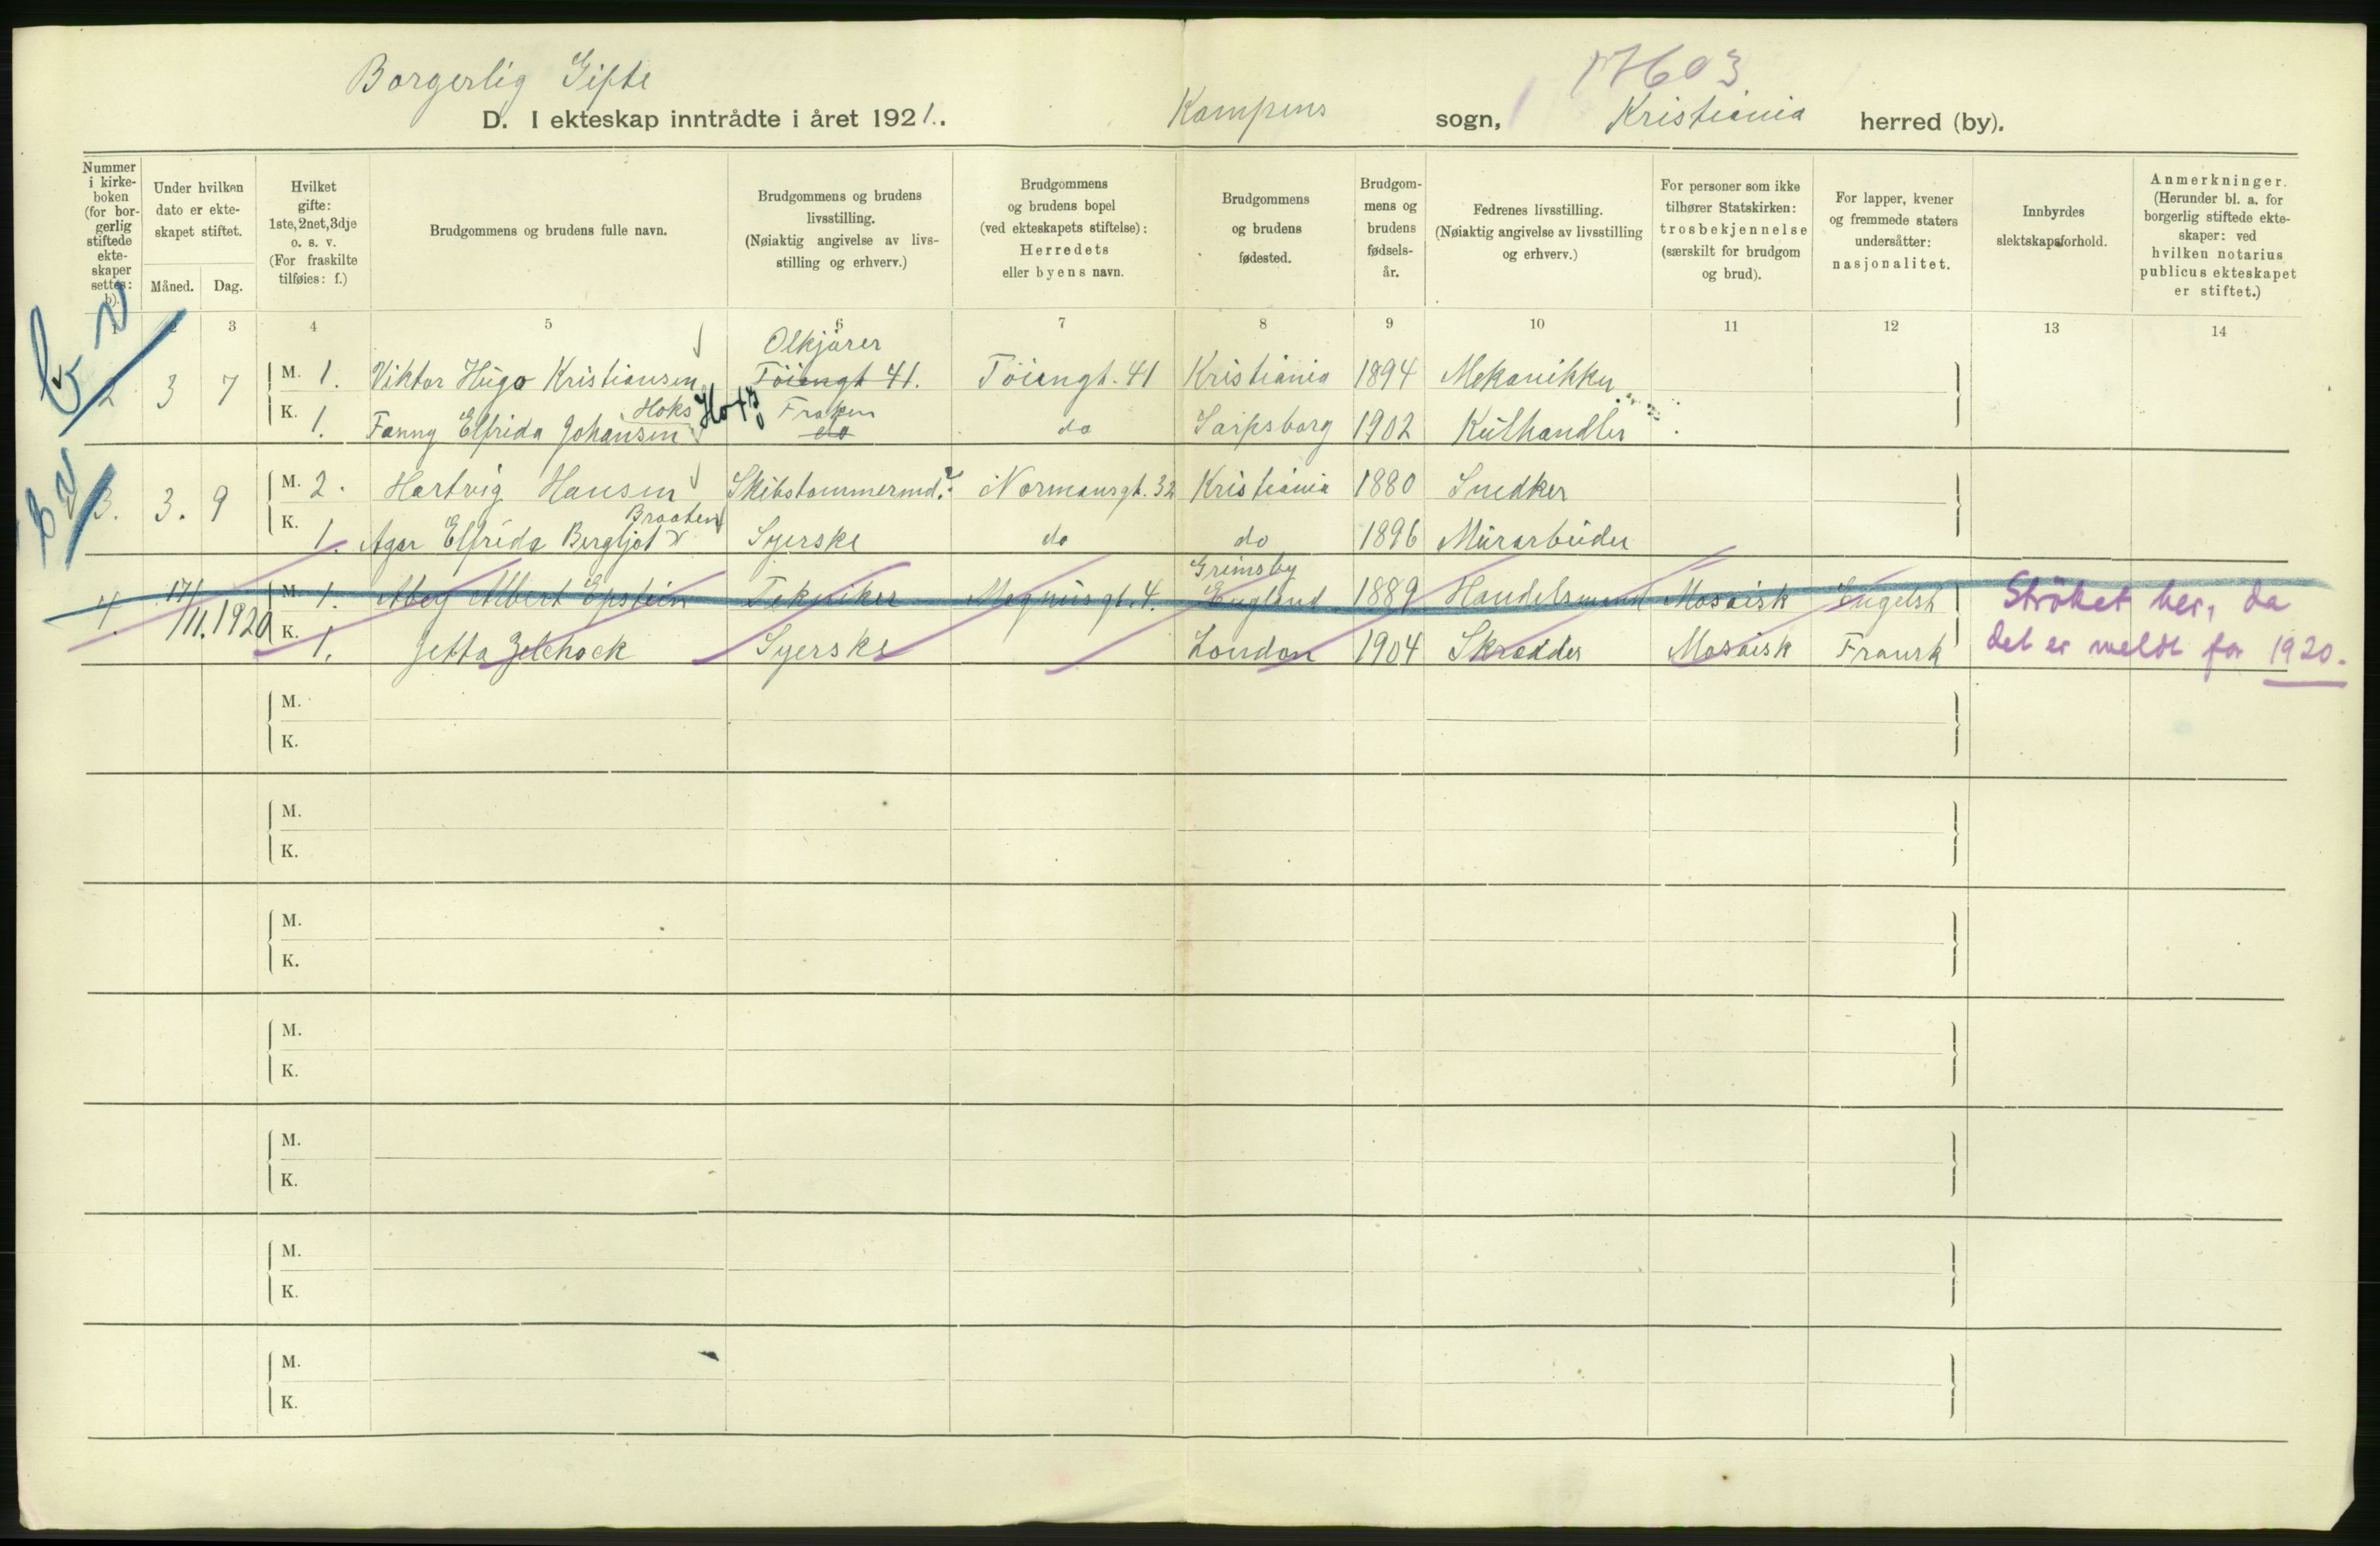 17603
Borgerlig Gifte
D. I ekteskap inntrådte i året 1921. Kampens sogn, Kristiania herred (by).
Nummer i kirkeboken (for borgerlig stiftede ekteskaper settes: b).
Under hvilken dato er ekteskapet stiftet.
Måned. Dag.
Hvilket gifte: 1ste, 2net, 3dje o. s. v. (For fraskilte tilføies: f.)
Brudgommens og brudens fulle navn.
Brudgommens og brudens livsstilling. (Nøiaktig angivelse av livsstilling og erhverv.)
Brudgommens og brudens bopel (ved ekteskapets stiftelse): Herredets eller byens navn.
Brudgommens og brudens fødested.
Brudgommens og brudens fødselsår.
Fedrenes livsstilling. (Nøiaktig angivelse av livsstilling og erhverv.)
For personer som ikke tilhører Statskirken: trosbekjennelse (særskilt for brudgom og brud).
For lapper, kvener og fremmede staters undersåtter: nasjonalitet.
Innbyrdes slektskapsforhold.
Anmerkninger. (Herunder bl. a. for borgerlig stiftede ekteskaper: ved hvilken notarius publicus ekteskapet er stiftet.)
1 2 3 4 5 6 7 8 9 10 11 12 13 14
Olkjører
2 3 7 M. 1. Viktor Hugo Kristiansen Töiengt 41. Töiengt. 41 Kristiania 1894 Mekanikker
Hoks Frøken
K. 1. Fanny Elfrida Johansen do do Sarpsborg 1902 Kulhandler
3. 3. 9 M. 2. Hartvig Hansen Skibstømmermd. Normansgt. 32 Kristiania 1880 Snedker
Braaten
K. 1. Agar Elfrida Bergljot Syerske do do 1896 Murarbeider
Grimsby
4. 17/11.1920 M. 1. Abey Albert Epstein Tekniker Magnusgt. 4. England 1889 Handelsmann Mosaisk Engelsk Ströket her, da
K. 1. Jetta Zelchock Syerske London 1904 Skrædder Mosaisk Fransk det er meldt for 1920.
M.
K.
M.
K.
M.
K.
M.
K.
M.
K.
M.
K.
M.
K.